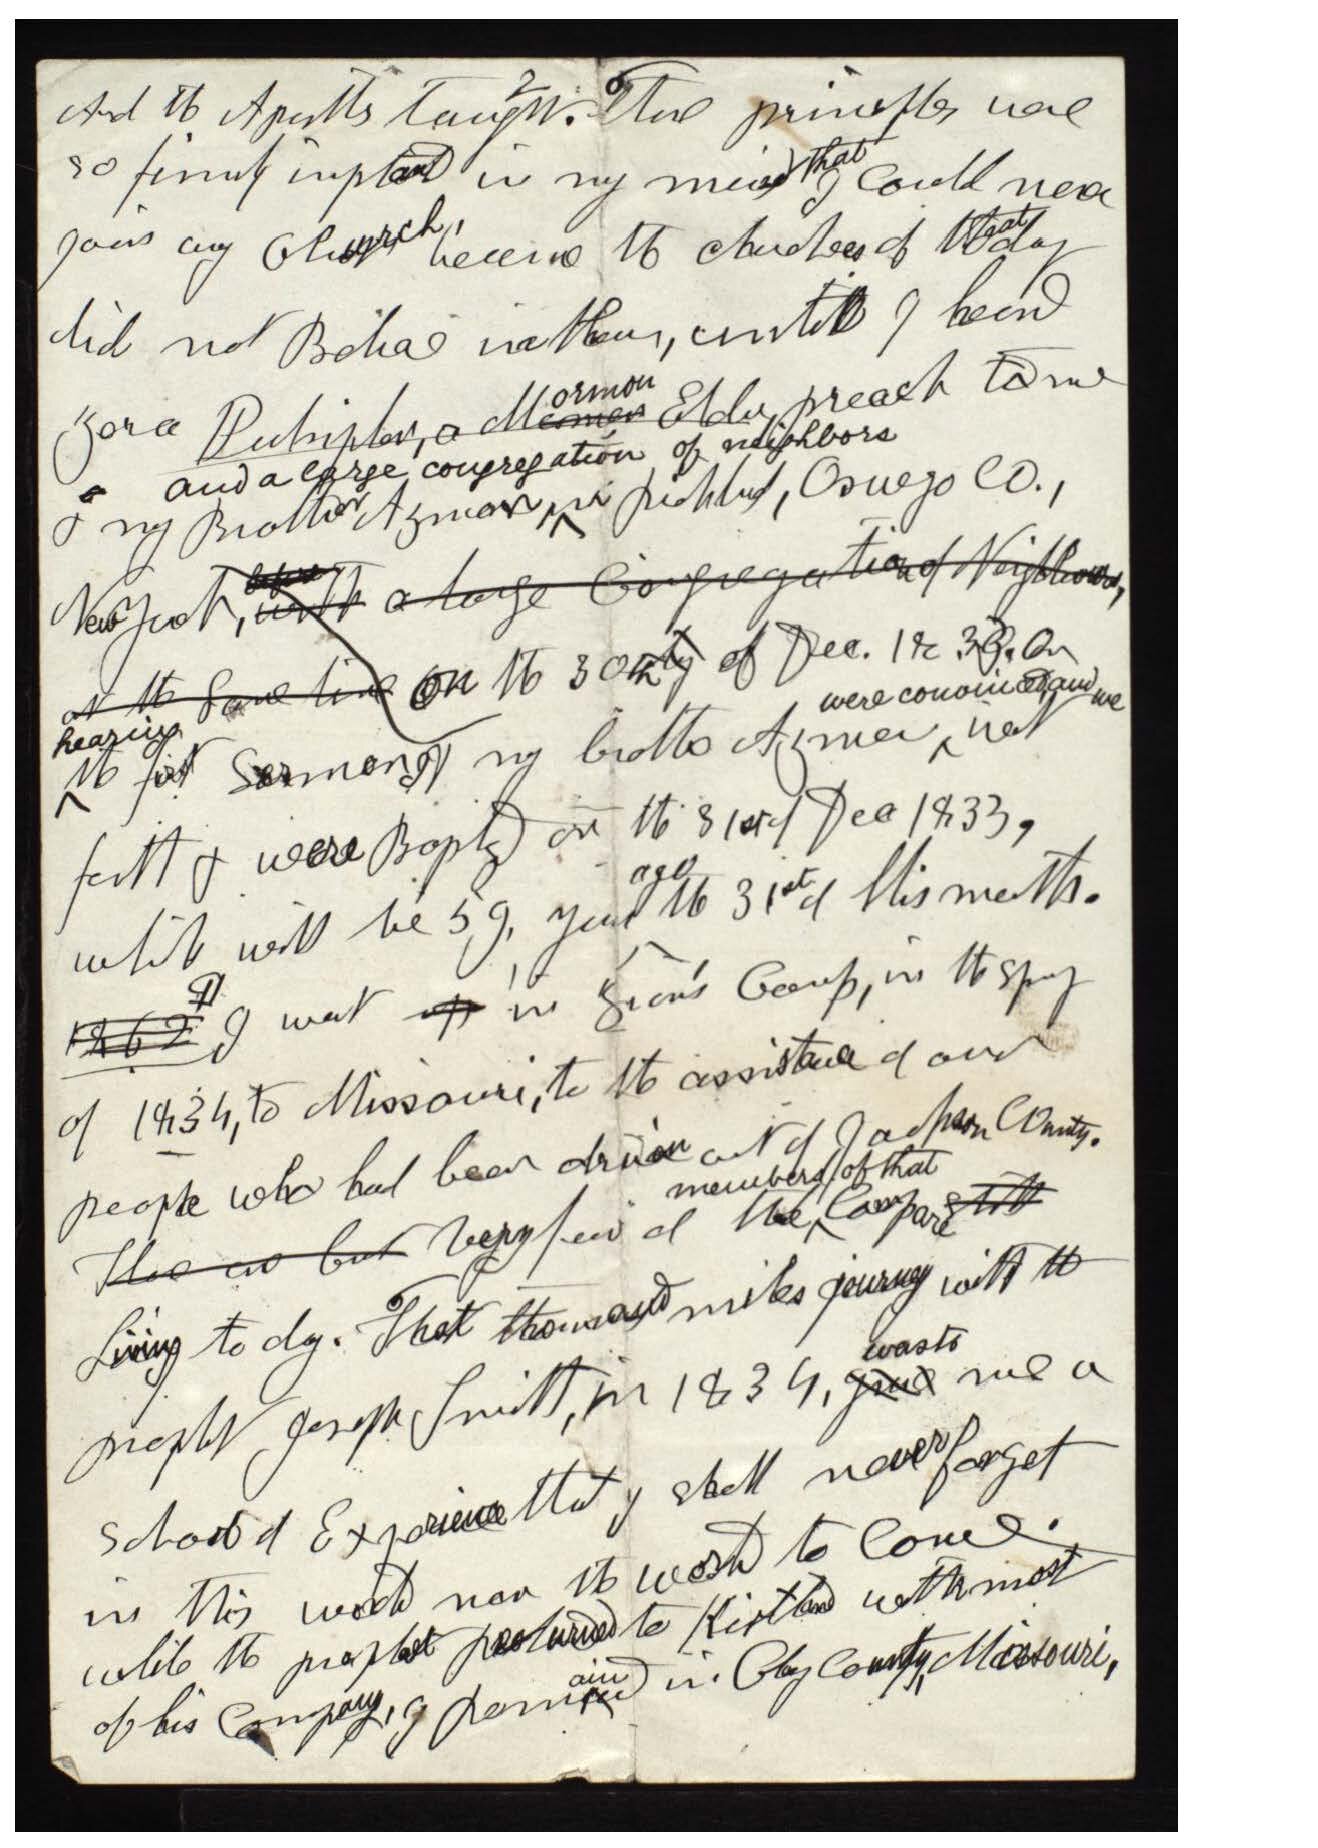 2
And the Apostles taught. These principles were
so firmly implanted in my mind that I Could never
join any Church, because the churches of that day
did not Believe in them, untill I heard
Zera Pulsipher, a Mormon Elder, preach to me
and a large congregation of neighbors
& my Brother Azmon, in Richland, Oswego CO.,
New York, before with a large Congregation of Neighbours,
at the Same time On the 30th of Dec. 1833. On
hearing were convinced, and we
the first Sermon my brother Azmon, went
forth & were Baptized on the 31st of Dec 1833,
which will be 59, years ago the 31st of this month.
1862 I went up in Zion's Camp, in the spring
of 1834, to Missouri, to the assistance of our
people who had been driven out of Jackson County.
members of that
There are but Very few of the Camp are still
Living to day. That thousand miles journey with the
was to
prophet Joseph Smith, in 1834, gave me a
School of Experience that I shall never forget
in this world nor the world to Come.
while the prophet returned to Kirtland with most
of his Company, I remained in Clay County, Missouri,